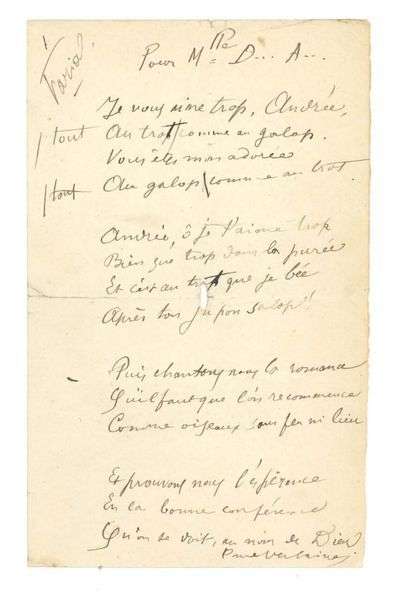 1
Varia
Pour Mlle D... A...
Je vous aime trop, Andrée,
/ tout Au trot / comme au galop.
Vous êtes mon adorée
/ tout Au galop / comme au trot.
Andrée, ô je t'aime trop
Bien que trop dans la purée
Et c'est au trot que je bée
Après ton jupon salop !
Puis chantons nous la romance
Qu'il faut que l'on recommence
Comme oiseaux sans feu ni lieu
Et prouvons nous l'
En la bonne conférence
Qu'on se doit, au nom de Dieu
Paul Verlaine